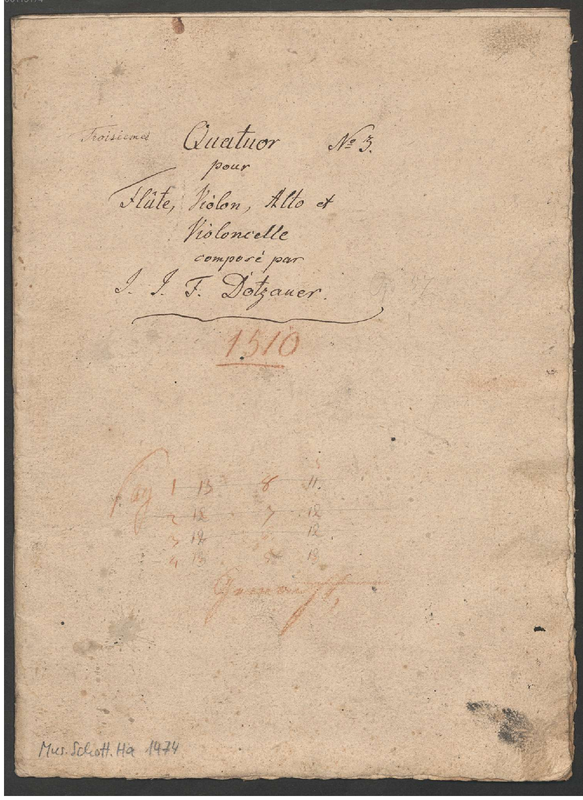 Troisieme Quatuor No 3.
pour
Flûte, Violon, Alto et
Violoncelle
composé par
J. J. F. Dotzauer.
1510
1 13 8 11.
2 12 7 12
3 12 12
4 13 5 12
Gemacht,
Mus. Schott. Ha 1474